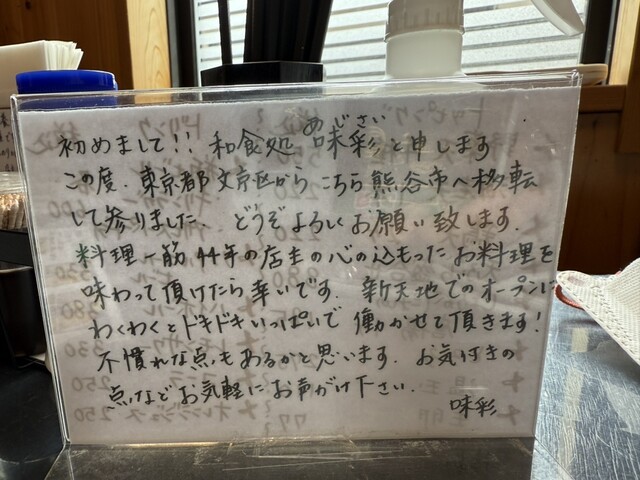 あじさい
初めまして!! 和食処 味彩と申します
この度、東京都文京区からこちら熊谷市へ移転
して参りました。どうぞよろしくお願い致します。
料理一筋44年の店主の心の込もったお料理を
味わって頂けたら幸いです。新天地でのオープンに
わくわくとドキドキいっぱいで働かせて頂きます!
不慣れな点もあるかと思います。お気付きの
点などお気軽にお声がけ下さい。
味彩